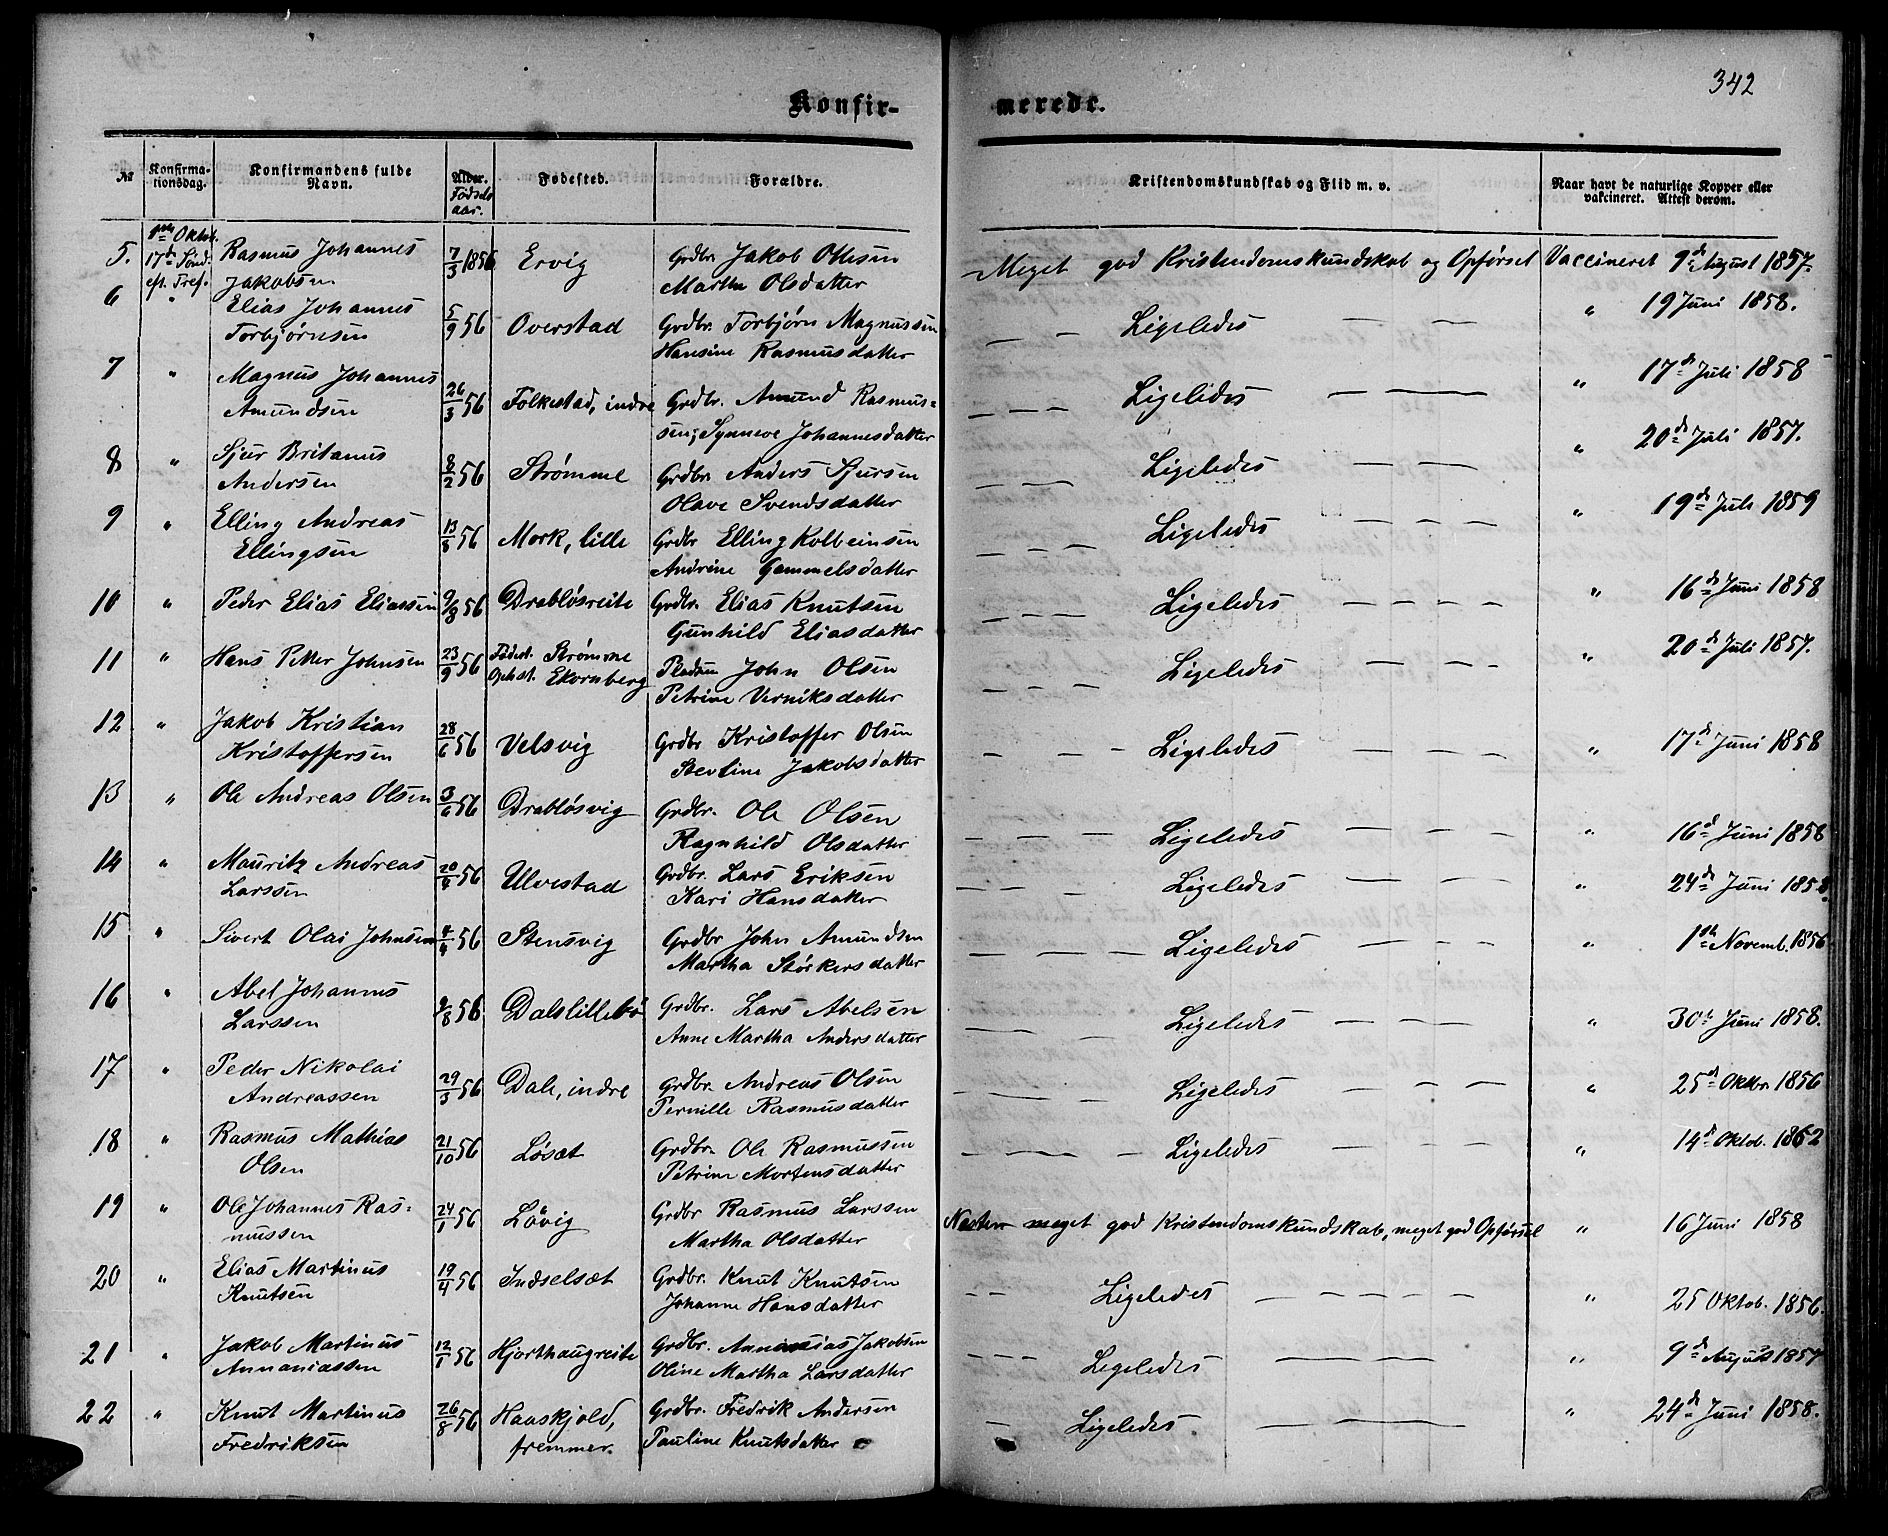 342
Konfir-
merede.
№
Konfirma-
tionsdag.
Konfirmandens fulde
Navn.
Alder.
Fødsels
aar.
Fødested.
Forældre.
Kristendomskundskab og Flid m. v.
Naar havt de naturlige Kopper eller
vakcineret. Attest derom.
5. 1ste Oktob. Rasmus Johannes 7/3 1856 Ervig Grdbr. Jakob Olsen Meget god Kristendomskundskab og Opførsel Vaccineret 9d August 1857.
17de Sønd. Jakobsen Martha Olsdatter
eft. Tref.
6 " Elias Johannes 5/9 56 Overstad Grdbr. Torbjørn Magnussen Ligeledes " 19 Juni 1858.
Torbjørnsen Hansine Rasmusdatter
7 " Magnus Johannes 26/3 56 Folkestad, indre Grdbr. Amund Rasmus= Ligeledes " 17d Juli 1858
Amundsen sen, Synneve Johannesdatter
8 " Sjur Britanus 8/2 56 Strømme Grdbr. Anders Sjursen Ligeledes " 20d Juli 1857.
Andersen Olave Svendsdatter
9 " Elling Andreas 13/8 56 Mork, lille Grdbr Elling Kolbeinsen Ligeledes " 19d Juli 1859
Ellingsen Andrine Gammelsdatter
10 " Peder Elias Eliassen 9/8 56 Drabløsreite Grdbr. Elias Knutsen Ligeledes " 16d Juni 1858
Gunhild Eliasdatter
11 " Hans Petter Johnsen 23/9 56 Fødest. Strømme Pladsm John Olsen Ligeledes " 20d Juli 1857.
Ophst. Ekornberg Petrine Verniksdatter
12 " Jakob Kristian 28/6 56 Velsvig Grdbr Kristoffer Olsen Ligeledes " 17d Juni 1858
Kristoffersen Sevline Jakobsdatter
13 " Ole Andreas Olsen 3/6 56 Drabløsvig Grdbr. Ole Olsen Ligeledes " 16d Juni 1858
Ragnhild Olsdatter
14 " Mauritz Andreas 20/4 56 Ulvestad Grdbr. Lars Eriksen Ligeledes " 24d Juni 1858.
Larssen Kari Hansdatter
15 " Sivert Olai Johnsen 4/4 56 Stensvig Grdbr John Amundsen Ligeledes " 1ste Novemb. 1856
Martha Størkersdatter
16 " Abel Johannes 9/8 56 Dalslillebø Grdbr. Lars Abelsen Ligeledes " 30te Juni 1858.
Larssen Anne Martha Andersdatter
17 " Peder Nikolai 29/3 56 Dale, indre Grdbr. Andreas Olsen Ligeledes " 25d Oktbr. 1856
Andreassen Pernille Rasmusdatter
18 " Rasmus Mathias 21/10 56 Løsæt Grdbr. Ole Rasmussen Ligeledes " 14d Oktob. 1862
Olsen Petrine Mortensdatter
19 " Ole Johannes Ras= 24/1 56 Løvig Grdbr Rasmus Larssen Næsten meget god Kristendomskundskab, meget god Opførsel " 16 Juni 1858
mussen Martha Olsdatter
20 " Elias Martinus 19/4 56 Indselsæt Grdbr. Knut Knutsen Ligeledes " 25 Oktob. 1856.
Knutsen Johanne Hansdatter
21 " Jakob Martinus 12/1 56 Hjorthaugreite Grdbr. Annanias Jakobsen Ligeledes " 9d August 1857
Annaniassen Oline Martha Larsdatter
22 " Knut Martinus 26/8 56 Haaskjold, Grdbr. Fredrik Andersen Ligeledes " 24d Juni 1858.
Fredriksen fremmer. Pauline Knutsdatter